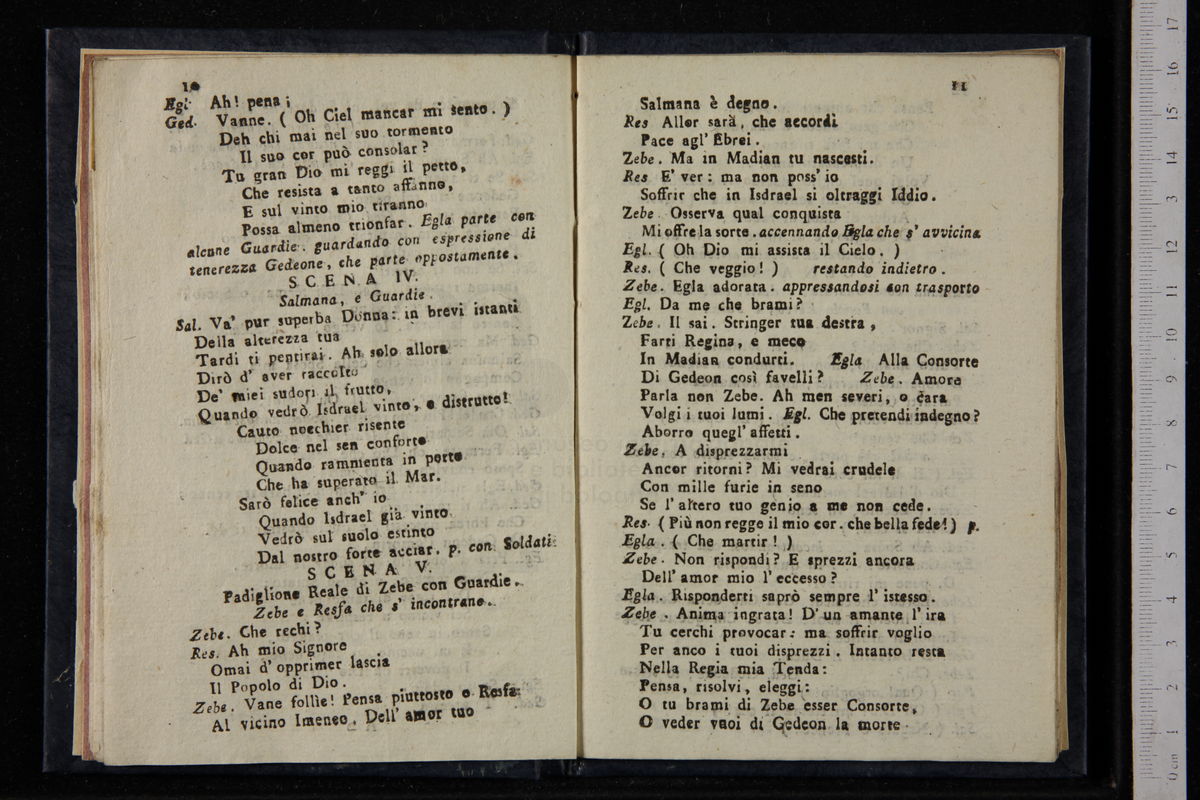 10
Egl. Ah! pena;
Ged. Vanne. ( Oh Ciel mancar mi sento. )
Deh chi mai nel suo tormento
Il suo cor può consolar?
Tu gran Dio mi reggi il petto,
Che resista a tanto affanno,
E sul vinto mio tiranno
Possa almeno trionfar. Egla parte con
alcune Guardie. guardando con espressione di
tenerezza Gedeone, che parte oppostamente.
SCENA IV.
Salmana, e Guardie.
Sal. Va' pur superba Donna: in brevi istanti
Della alterezza tua
Tardi ti pentirai. Ah solo allora
Dirò d' aver raccolto
De' miei sudori il frutto,
Quando vedrò Isdrael vinto, e distrutto!
Cauto nocchier risente
Dolce nel sen conforto
Quando rammenta in porto
Che ha superato il Mar.
Sarò felice anch' io
Quando Isdrael già vinto
Vedrò sul suolo estinto
Dal nostro forte acciar. p. con Soldati
SCENA V.
Padiglione Reale di Zebe con Guardie.
Zebe e Resfa che s' incontrano.
Zebe. Che rechi?
Res. Ah mio Signore
Omai d' opprimer lascia
Il Popolo di Dio.
Zebe. Vane follìe! Pensa piuttosto o Resfa
Al vicino Imeneo. Dell' amor tuo
11
Salmana è degno.
Res Allor sarà, che accordi
Pace agl' Ebrei.
Zebe. Ma in Madian tu nascesti.
Res E' ver: ma non poss' io
Soffrir che in Isdrael si oltraggi Iddio.
Zebe. Osserva qual conquista
Mi offre la sorte. accennando Egla che s' avvicina
Egl. ( Oh Dio mi assista il Cielo. )
Res. ( Che veggio! ) restando indietro.
Zebe. Egla adorata. appressandosi con trasporto
Egl. Da me che brami?
Zebe. Il sai. Stringer tua destra,
Farti Regina, e meco
In Madian condurti. Egla Alla Consorte
Di Gedeon così favelli? Zebe. Amore
Parla non Zebe. Ah men severi, o cara
Volgi i tuoi lumi. Egl. Che pretendi indegno?
Aborro quegl' affetti.
Zebe. A disprezzarmi
Ancor ritorni? Mi vedrai crudele
Con mille furie in seno
Se l' altero tuo genio a me non cede.
Res. ( Più non regge il mio cor. che bella fede! ) p.
Egla. ( Che martir! )
Zebe. Non rispondi? E sprezzi ancora
Dell' amor mio l' eccesso?
Egla. Risponderti saprò sempre l' istesso.
Zebe. Anima ingrata! D' un amante l' ira
Tu cerchi provocar: ma soffrir voglio
Per anco i tuoi disprezzi. Intanto resta
Nella Regia mia Tenda:
Pensa, risolvi, eleggi:
O tu brami di Zebe esser Consorte,
O veder vuoi di Gedeon la morte.
0 cm 1 2 3 4 5 6 7 8 9 10 11 12 13 14 15 16 17